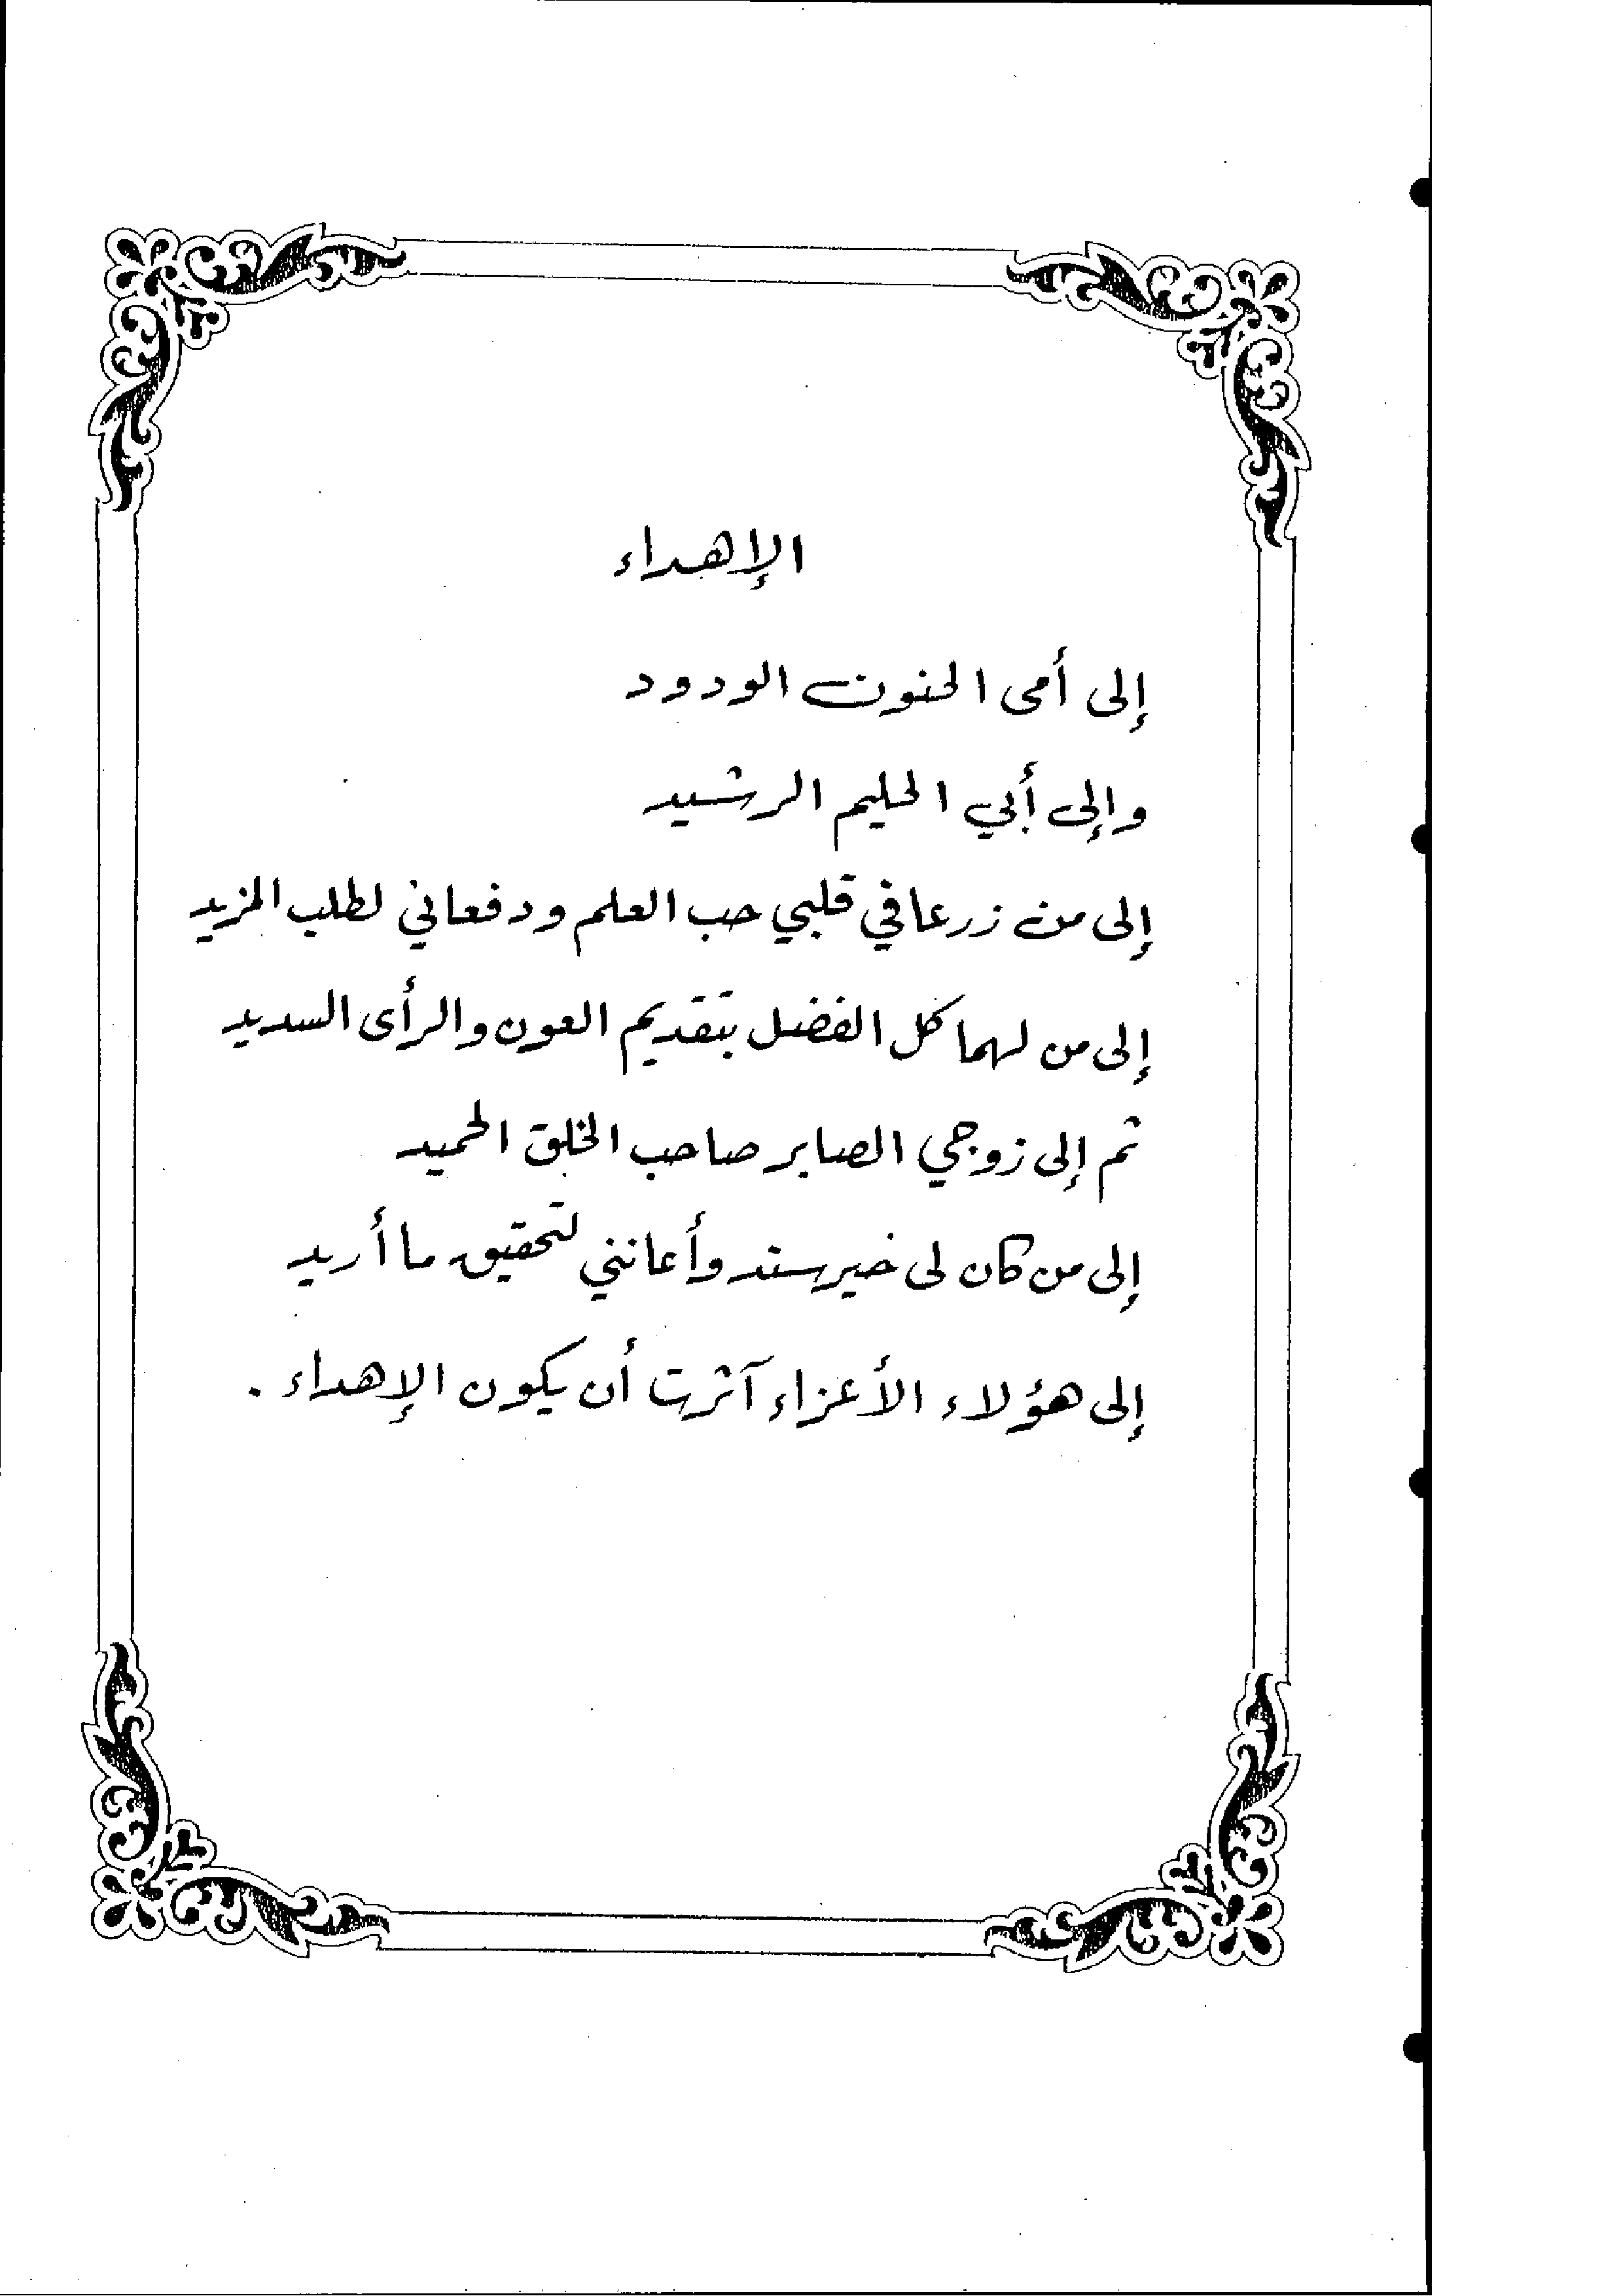 الإهداء
إلى أمى الحنون الودود
وإلى أبي الحليم الرشيد
إلى من زرعا في قلبي حب العلم ودفعاني لطلب المزيد
إلى من لهما كل الفضل بتقديم العون والرأى السديد
ثم إلى زوجي الصابر صاحب الخلق الحميد
إلى من كان لى خير سند وأعانني لتحقيق ما أريد
إلى هؤلاء الأعزاء آثرت أن يكون الإهداء .